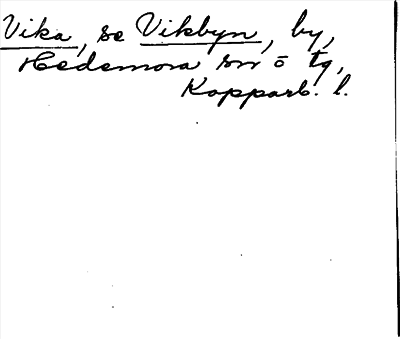 Vika, se Vikbyn, by,
Hedemora sn o tg,
Kopparb. l.